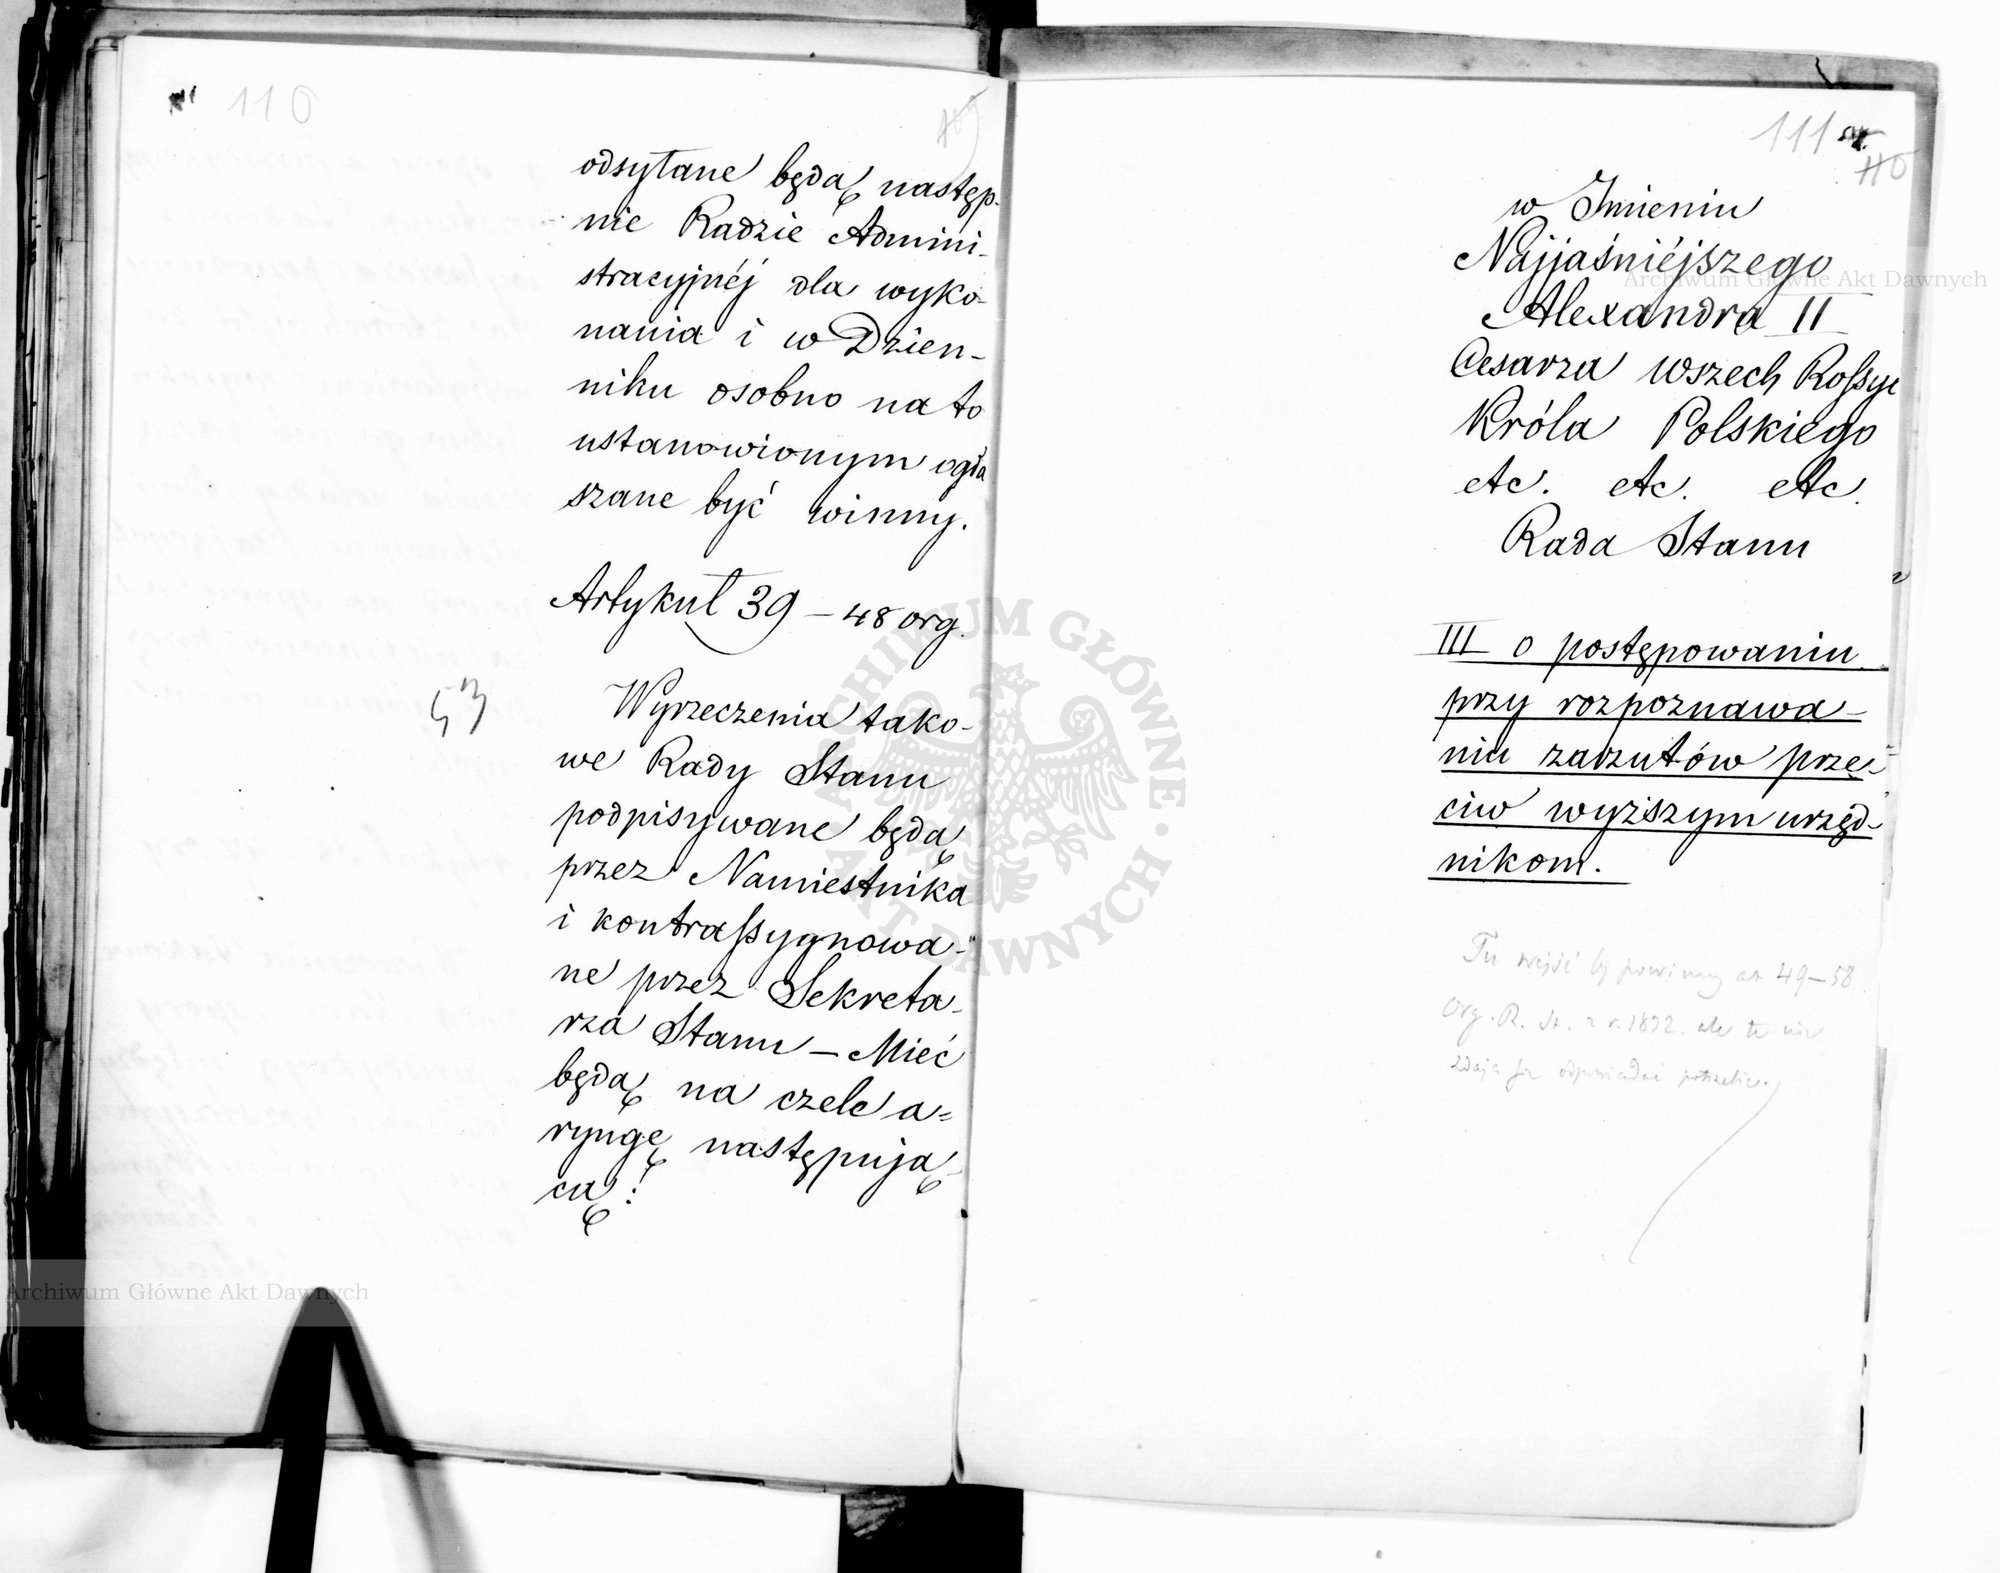 110
109
odsyłane będą następ-
nie Radzie Admini-
stracyjnéj dla wyko-
nania i w Dzien-
niku osobno na to
ustanowionym ogła
szane być winny.
Artykuł 39 – 48 org.
53
Wyrzeczenia tako-
we Rady Stanu
podpisywane będą
przez Namiestnika
i kontrassygnowa-
ne przez Sekreta-
rza Stanu – Mieć
będą na czele a=
ryngę następują-
cą:
111
110
w Imieniu
Najjaśniéjszego
Alexandra II
Cesarza wszech Rossyi
Króla Polskiego
etc. etc. etc.
Rada Stanu
III o postępowaniu
przy rozpoznawa-
niu zarzutów prze-
ciw wyższym urzęd-
nikom.
Tu wejść by powinny art 49–58
Org. R. St. z r. 1822. ale te nie
zdają się odpowiadać potrzebie.
Archiwum Główne Akt Dawnych
Archiwum Główne Akt Dawnych
ARCHIWUM GŁÓWNE AKT DAWNYCH